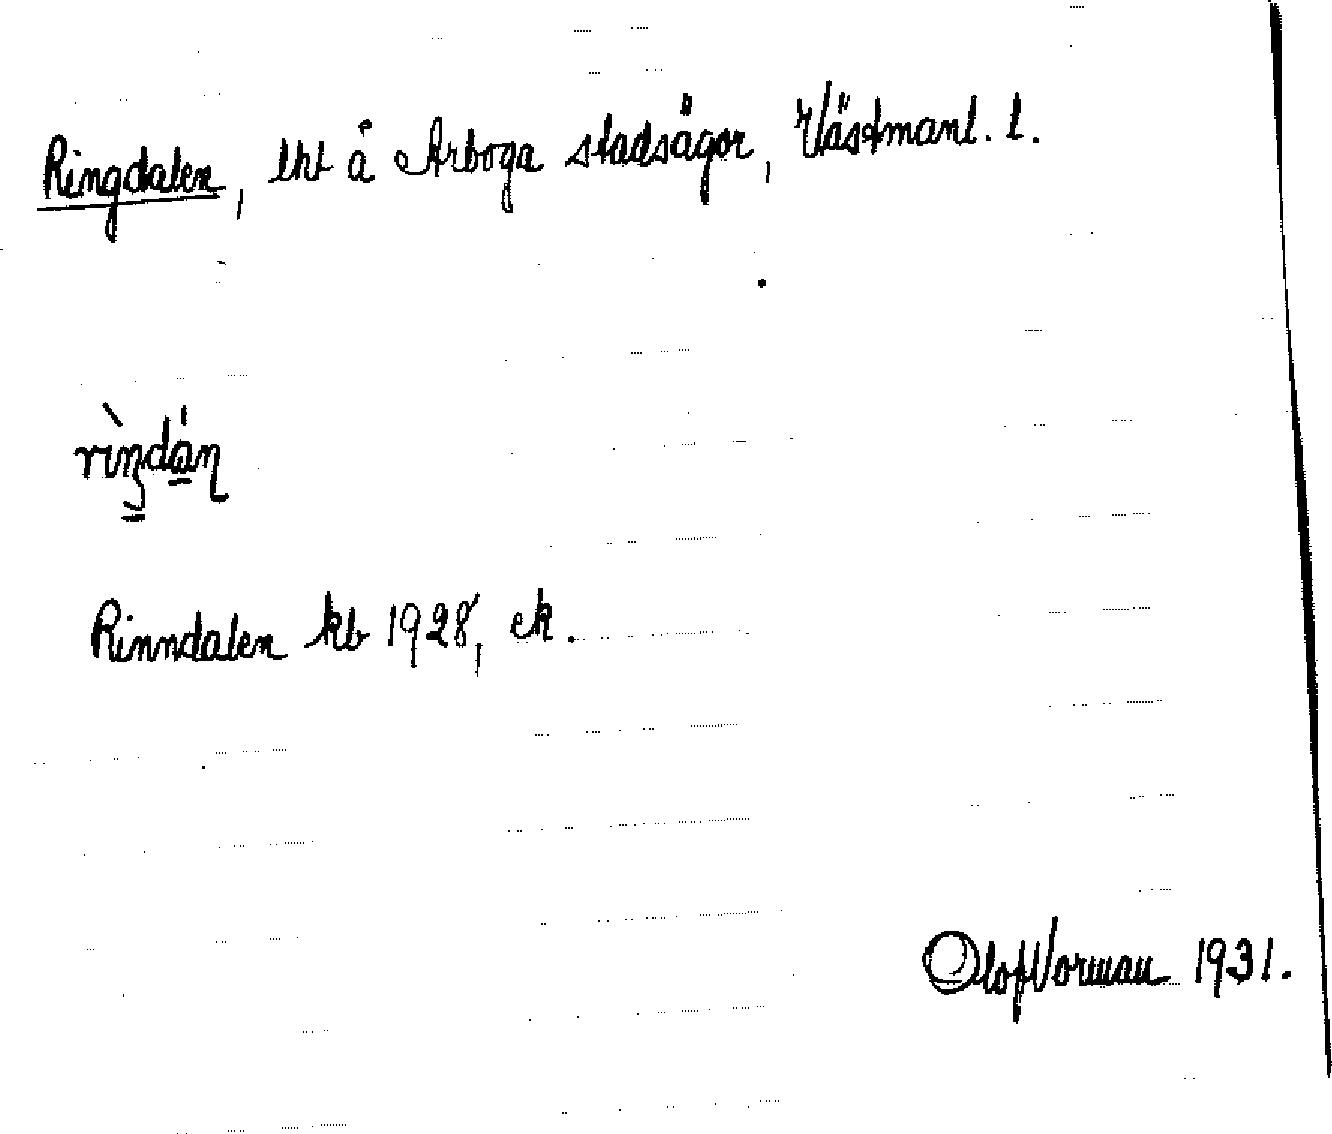 Ringdalen, lht å Arboga stadsägor, Västmanl. l.
Rinndalen kb 1928, ek.
Olof Vorman 1931.